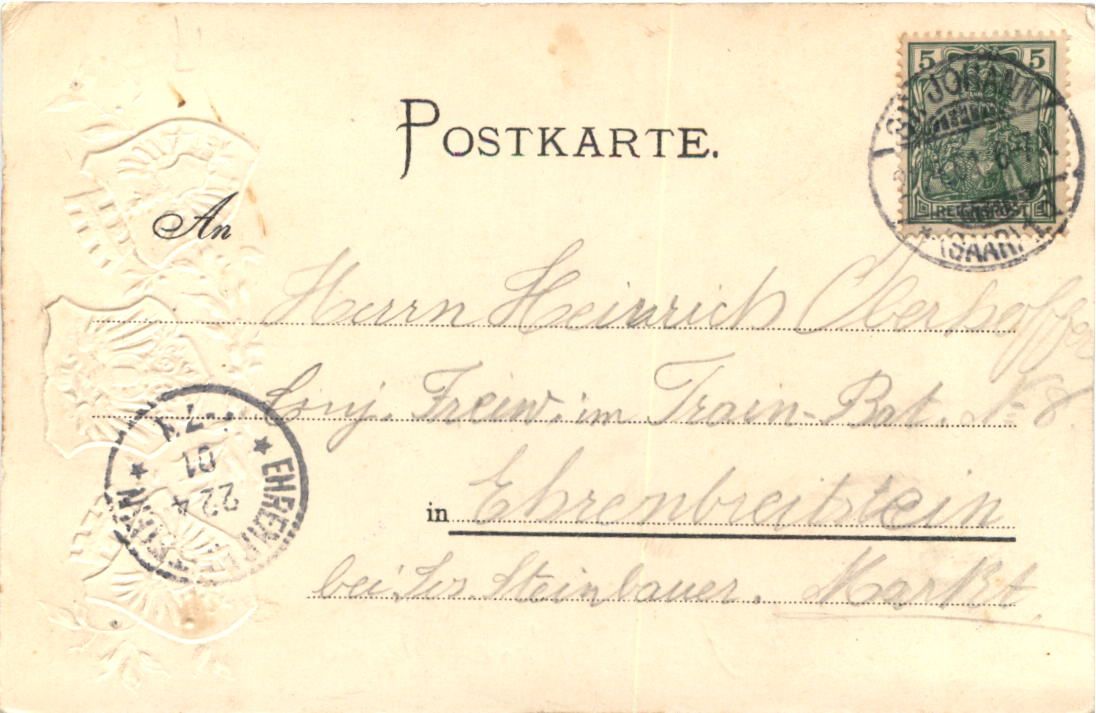 POSTKARTE.
5 5
ST. JOHANN
01. 6-7 N.
REICHSPOST
* (SAAR) 1
An
Herrn Heinrich Oberhoffer
Einj. Freiw. im Train-Bat. Nr 8
in Ehrenbreitstein
bei Steinbauer. Markt
EHRENBREITSTEIN
22 4
01
7-